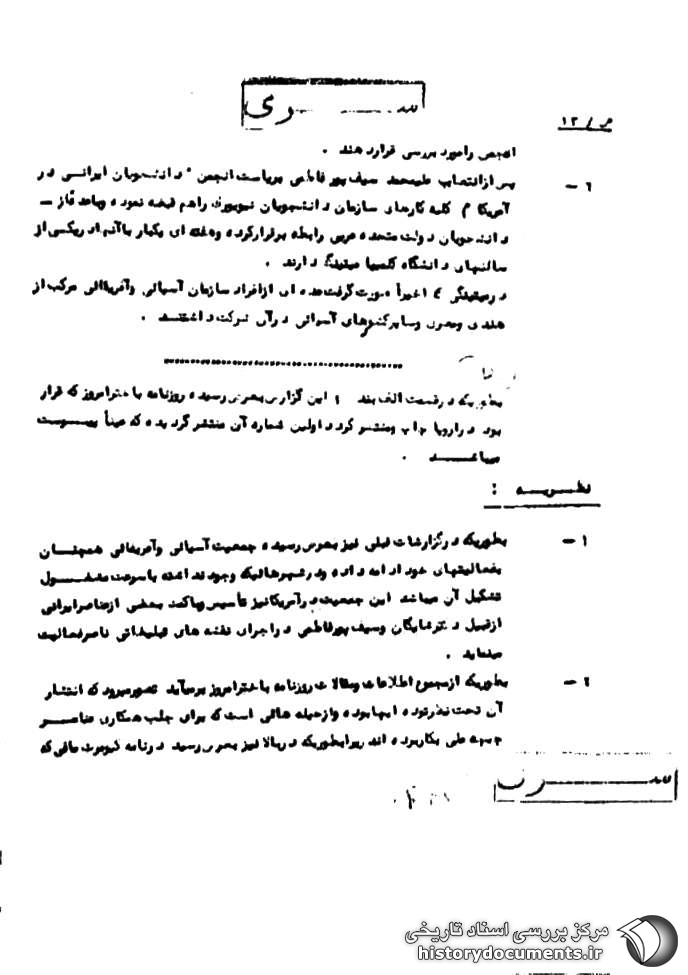 سری
ص / ١٣
انجمن را مورد بررسی قرار دهند .
٦ - پس از انتصاب علیمحمد سیف پور فاطمی بریاست انجمن " دانشجویان ایرانی در
آمریکا " کلیه کارهای سازمان دانشجویان نیویورک را هم قبضه نموده و
دانشجویان دولت متحده عربی رابطه برقرار کرده و هفته ای یکبار با آنها در یکی از
سالنهای دانشگاه کلمبیا میتینگ دارند .
در میتینگی که اخیراً صورت گرفت عده ای از افراد سازمان آسیائی و آفریقائی مرکب از
هندی و مصری و سایر کشورهای آسیائی در آن شرکت داشتند .
بطوریکه در قسمت الف بند ١ این گزارش بعرض رسیده روزنامه باختر امروز که قرار
بود در اروپا چاپ و منتشر گردد اولین شماره آن منتشر گردیده که عیناً بپیوست
میباشد .
نظریه :
١ - بطوریکه در گزارشات قبلی نیز بعرض رسیده جمعیت آسیائی و آفریقائی همچنان
بفعالیتهای خود ادامه داده و در شهرهائیکه وجود نداشته با سرعت مشغول
تشکیل آن میباشد این جمعیت در آمریکا نیز تأسیس و بعضی از عناصر ایرانی
از قبیل دکتر شایگان و سیف پور فاطمی در اجرای نقشه های تبلیغاتی ناصر فعالیت
مینماید .
٢ - بطوریکه از مجموع اطلاعات و مقالات روزنامه باختر امروز برمیآید تصور میرود که انتشار
آن تحت نظر توده ایها بوده و از حیله هائی است که برای جلب همکاری عناصر
جبهه ملی بکار برده اند زیرا بطوریکه در بالا نیز بعرض رسید در نامه کیومرث که
سری
مرکز بررسی اسناد تاریخی
historydocuments.ir